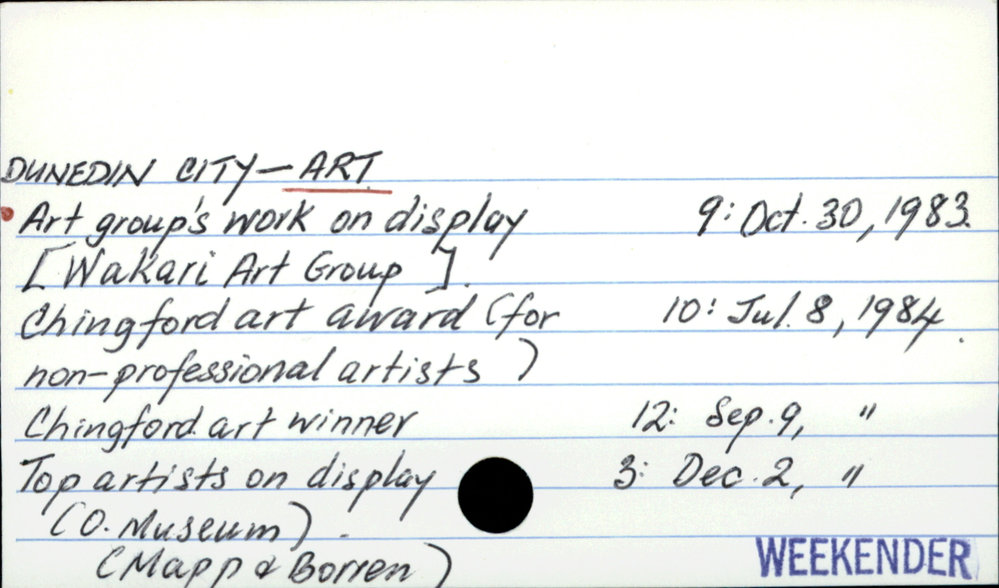 DUNEDIN CITY — ART
Art group's work on display 9: Oct. 30, 1983.
[Wakari Art Group].
Chingford art award (for 10: Jul. 8, 1984.
non-professional artists)
Chingford art winner 12: Sep. 9, "
Top artists on display 3: Dec. 2, "
(O. Museum).
(Mapp & Borren)
WEEKENDER